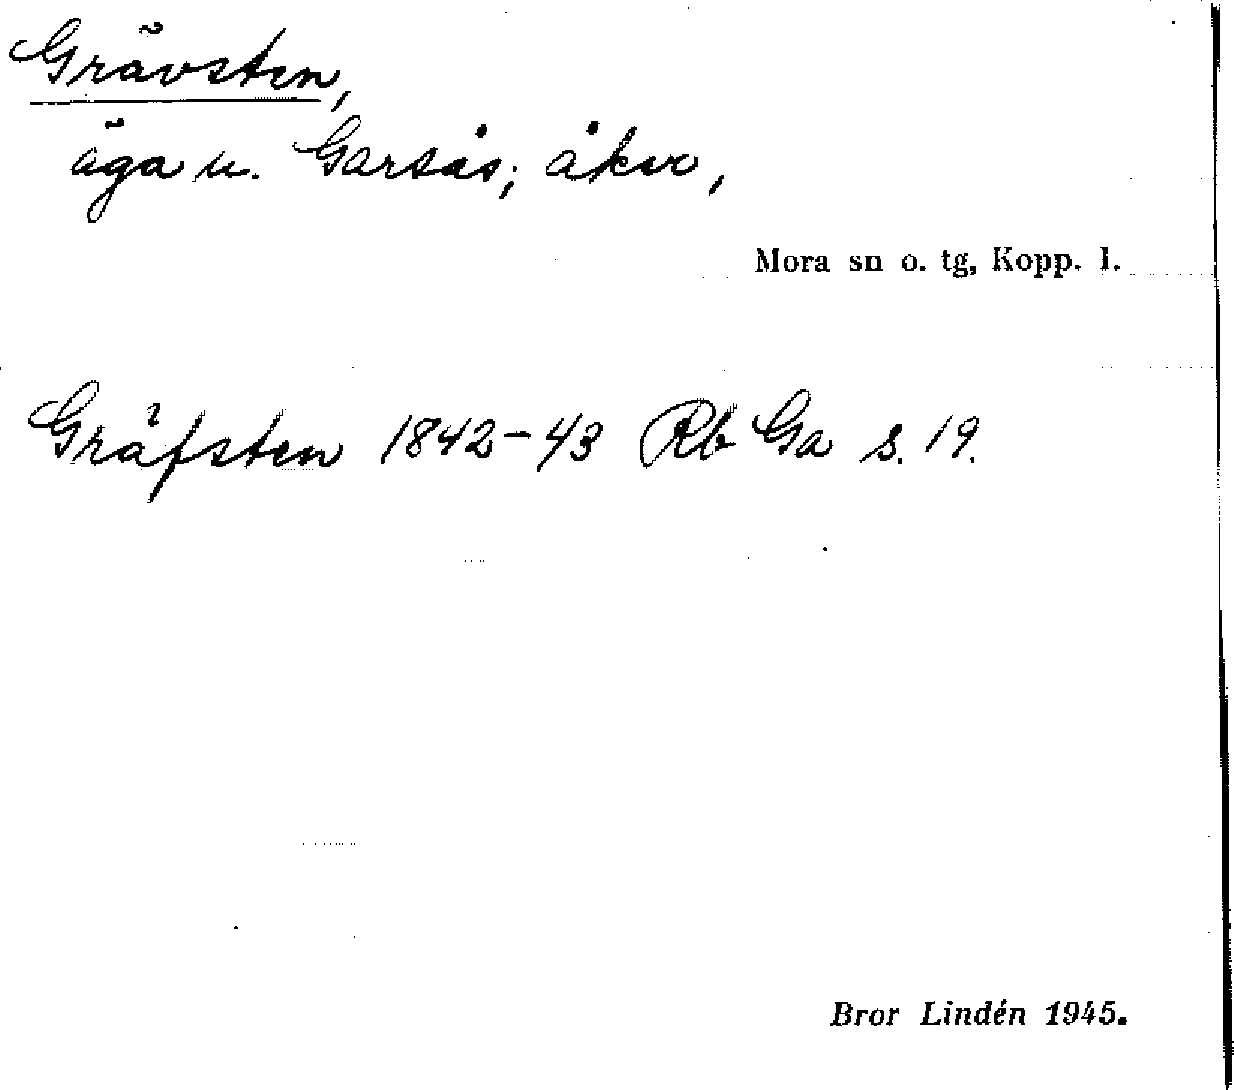 Grävsten,
äga u. Garsås; åker,
Mora sn o. tg, Kopp. l.
Gräfsten 1842-43 Rb Ga s. 19.
Bror Lindén 1945.